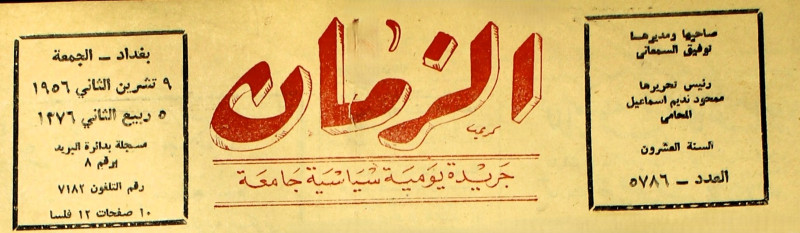 صاحبها ومديرها
توفيق السمعاني
رئيس تحريرها
محمود نديم اسماعيل
المحامي
السنة العشرون
العدد – ٥٧٨٦
الزمان
جريدة يومية سياسية جامعة
بغداد – الجمعة
٩ تشرين الثاني ١٩٥٦
٥ ربيع الثاني ١٣٧٦
مسجلة بدائرة البريد
برقم ٨
رقم التلفون ٧١٨٢
١٠ صفحات ١٢ فلسا